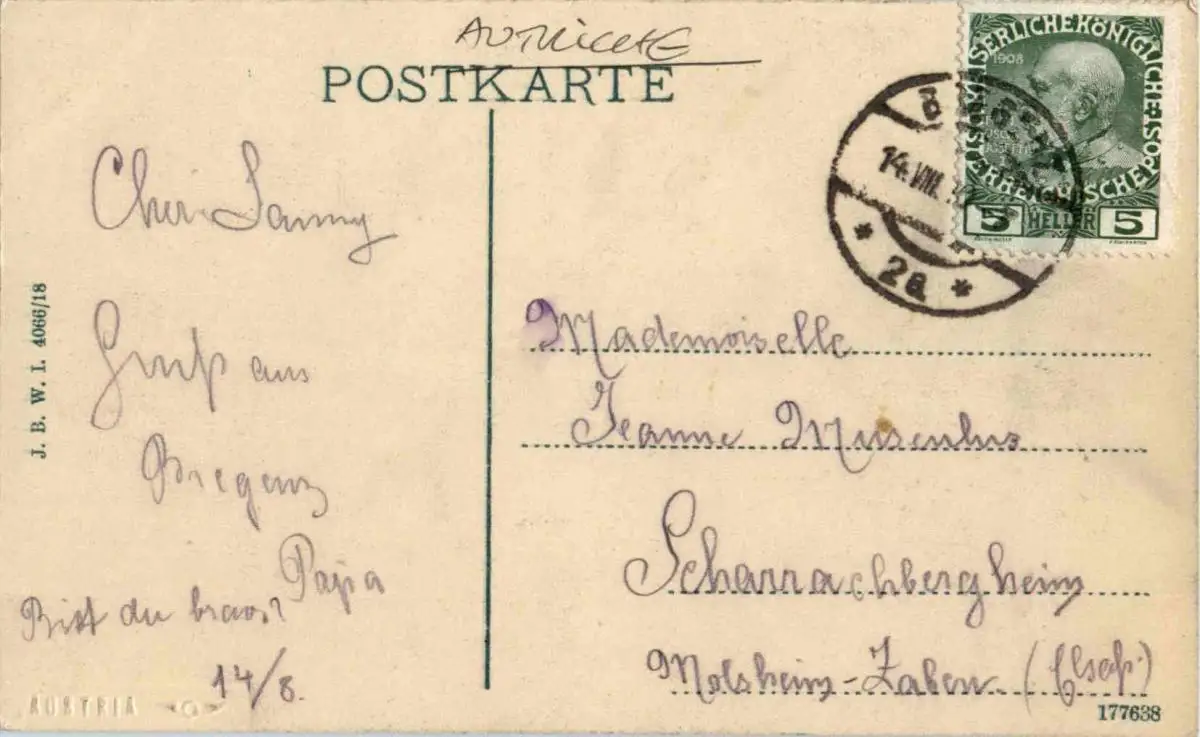 AUTRICHE
POSTKARTE
1908
KAISERLICHEKÖNIGLICHE
ÖSTERREICHISCHEPOST
5 HELLER 5
14.VIII.
* 2a *
Cher
Gruß aus
Bregenz
Papa
Bist du brav?
14/8.
Mademoiselle
Jeanne Musenhus
Scharrachbergheim
Molsheim-Zabern (Elsaß)
J. B. W. I. 4066/18
AUSTRIA
177638